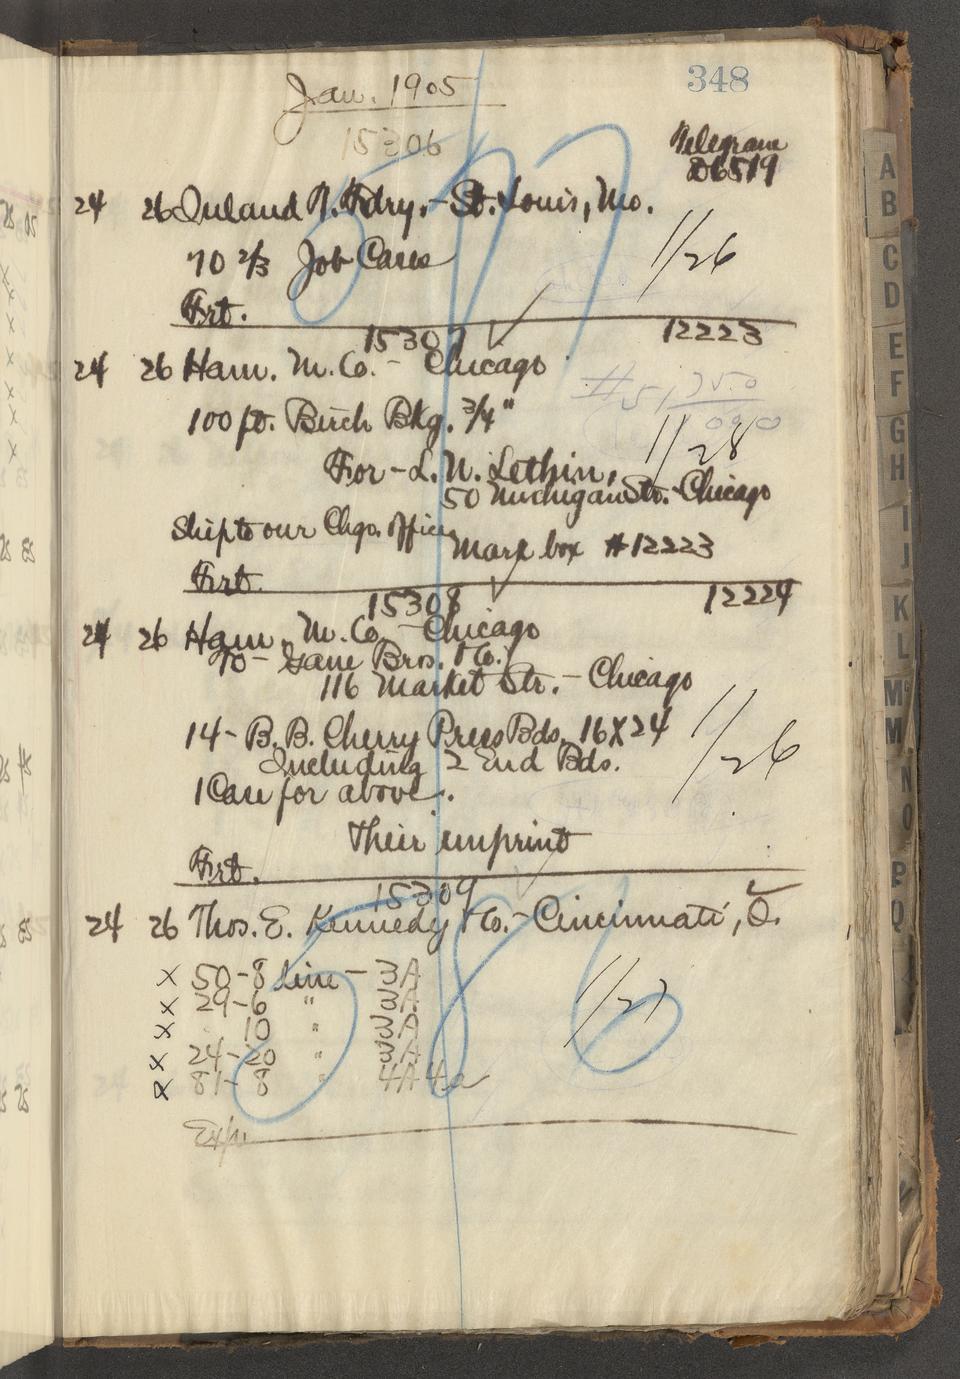 348
Jan. 1905
15306
Telegram
D6519
24 26 Inland T. Fdry. - St. Louis, Mo.
70 2/3 Job Cases 1/26
Frt.
15307 12223
24 26 Ham. M. Co. - Chicago
100 ft. Birch Bkg. 3/4" 1/28
For - L. N. Lethin,
50 Michigan Str. - Chicago
Ship to our Chgo. office
Mark box #12223
Frt.
15308 12224
24 26 Ham. M. Co. - Chicago
To - Gane Bros. & Co.
116 Market Str. - Chicago
14 - B.B. Cherry Press Bds. 16X24
Including 2 End Bds. 1/26
1 Case for above.
Their imprint
Frt.
15309
24 26 Thos. E. Kennedy & Co. - Cincinnati, O.
x 50-8 line - 3A 1/27
x 29-6 " 2A
x 10 " 2A
x 24-20 " 2A
x 81-8 " 4A
Exp.
577
586
A
B
C
D
E
F
G
H
I
J
K
L
Mc
M
N
O
P
Q